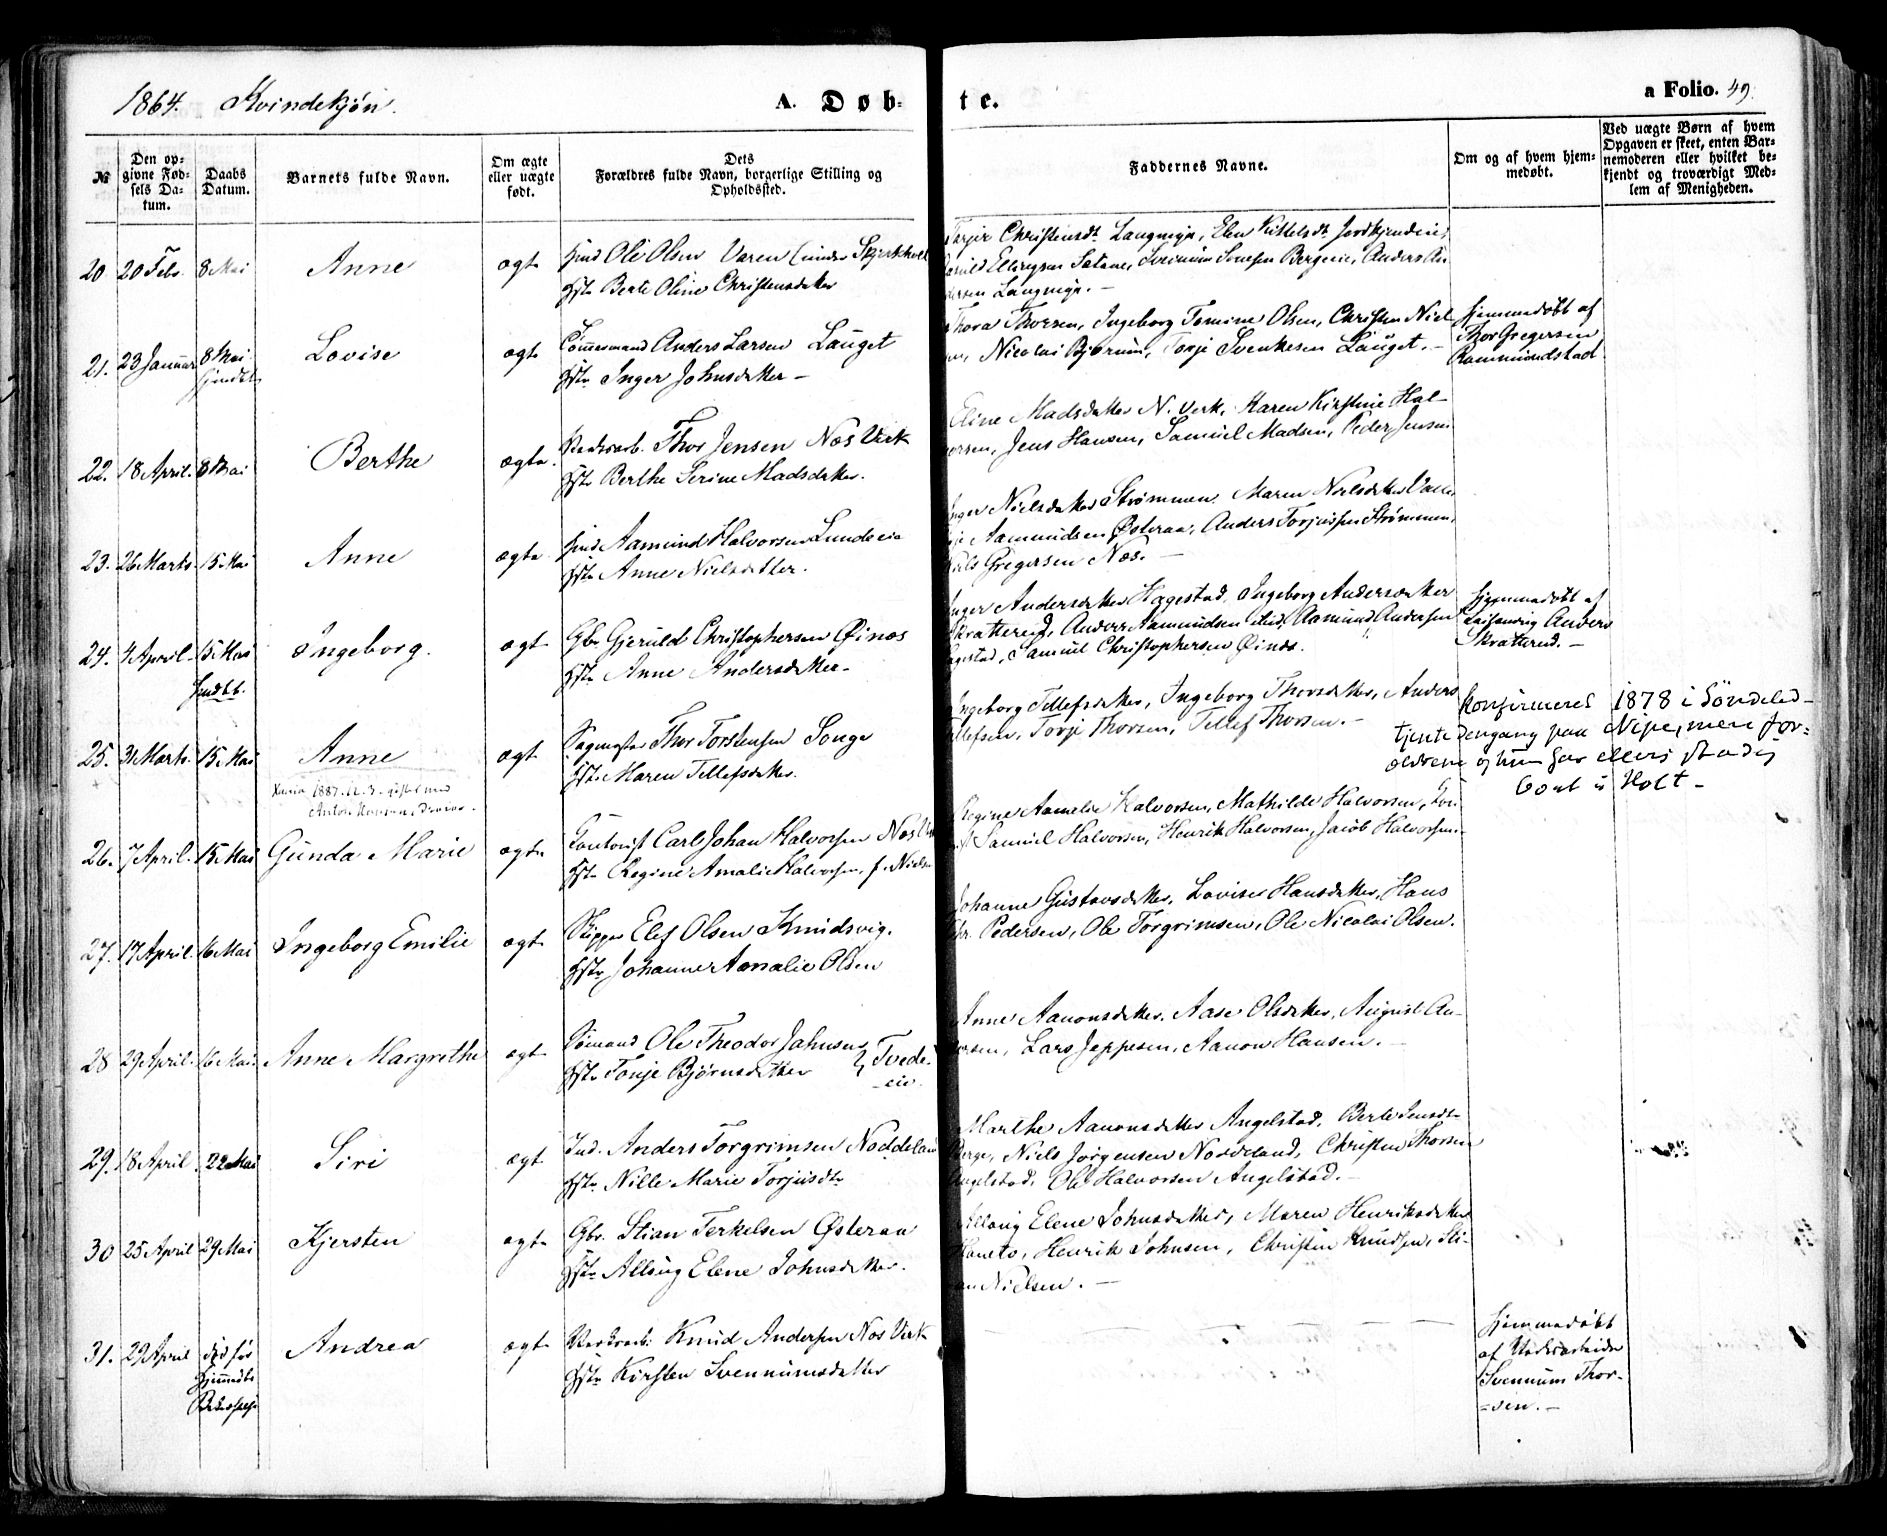 1864. Kvindekjøn. A. Døb- te. a Folio. 49.
№
Den op-
givne Fød-
sels Da-
tum.
Daabs
Datum.
Barnets fulde Navn.
Om ægte
eller uægte
født.
Dets
Forældres fulde Navn, borgerlige Stilling og
Opholdssted.
Faddernes Navne.
Om og af hvem hjem-
medøbt.
Ved uægte Børn af hvem
Opgaven er skeet, enten Bar-
nemoderen eller hvilket be-
kjendt og troværdigt Med-
lem af Menigheden.
20 20 Febr. 8 Mai Anne ægte Ole Olsen Varen under
Hstr Berte Oline Christensdatter
Christensdt. Langmyr, Elen Kittelsdt.
Ellingsen Anders An-
dersen Langmyr. —
21. 23 Januar 8 Mai Lovise ægte Tømmermand Anders Larsen Lauget
Hstr Inger Johnsdatter —
Thora Thorsen, Ingeborg Tomine Olsen, Christen Niel
Nicolai Torje Svenkesen Lauget. —
Hjemmedøbt af
Thor Gregersen
22. 18 April. 8 Mai Berthe ægte Thor Jensen Næs Verk
Hstr Berthe Serine Madsdatter.
Eline Madsdatter N. Verk, Karen Kirstine Hal-
vorsen, Jens Hansen, Samuel Madsen, Peder Jensen
23. 26 Marts. 15 Mai Anne ægte Ind. Aamund Halvorsen
Hstr Anne Nielsdatter.
Inger Nielsdatter Strømmen, Maren Nielsdatter
Aamundsen Østeraa, Anders Torjussen Strømmen,
Niels Gregersen Næs. —
24. 4 April. 15 Mai Ingeborg. ægte Gbr Gjeruld Christophersen Øinæs
Hstr Anne Andersdatter
Inger Andersdatter Hagestad, Ingeborg Andersdatter
Skratterud, Anders Aamundsen ibid, Aamund Andersen
Hagestad, Samuel Christophersen Øinæs.
Hjemmedøbt af
Anders
Skratterud. —
25. 31 Marts. 15 Mai Anne ægte Thor Torstensen Songe
Hstr Maren Tellefsdatter.
1887. 12. 3. gift med
Anton
Ingeborg Tellefsdatter, Ingeborg Thorsdatter, Anders
Tellefsen, Torje Thorsen, Tellef Thorsen. —
Konfirmeret 1878 i Søndeled
tjente dengang paa Nipe, men for-
ældrene og hun har ellers stadig
boet i Holt —
26. 7 April. 15 Mai Gunda Marie ægte Carl Johan Halvorsen
Hstr Regine Amalie Halvorsen, f. Nielsen
Regine Aamalie Halvorsen, Mathilde Halvorsen,
Samuel Halvorsen, Henrik Halvorsen, Jacob Halvorsen.
27. 17 April. 16 Mai Ingeborg Emilie ægte Skipper Elef Olsen Knudsvig.
Hstr Johanne Amalie Olsen
Johanne Gustavsdatter, Lovise Hansdatter, Hans
Chr. Pedersen, Ole Torgrimsen, Ole Nicolai Olsen.
28 29 April. 16 Mai. Anne Margrethe ægte Sømand Ole Theodor Jahnsen
Hstr Tonje Bjørnsdatter } Tvede-
eie.
Anne Aanonsdatter, Aase Olsdatter, August An-
dersen, Lars Jeppesen, Aanon Hansen. —
29. 18 April 22 Mai Siri ægte Ind. Anders Torgrimsen
Hstr Nille Marie Torjusdtr
Marthe Aanonsdatter Angelstad, Berte Jensdtr
Berge, Niels Jørgensen Norddeland, Christen Thorsen
Angelstad, Ole Halvorsen Angelstad. —
30 25 April 29 Mai Kjersten ægte Gbr. Stian Terkelsen Østeraa
Hstr Allaug Elene Johnsdatter.
Allaug Elene Johnsdatter, Maren Henriksdatter
Henrik Johnsen, Christen Knudsen, Sti-
an Nielsen. —
31. 29 April død før
Andrea ægte Knud Andersen Næs Verk
Hstr Kirsten Svennumsdatter
Hjemmedøbt
af
Svennum Thor-
sen. —